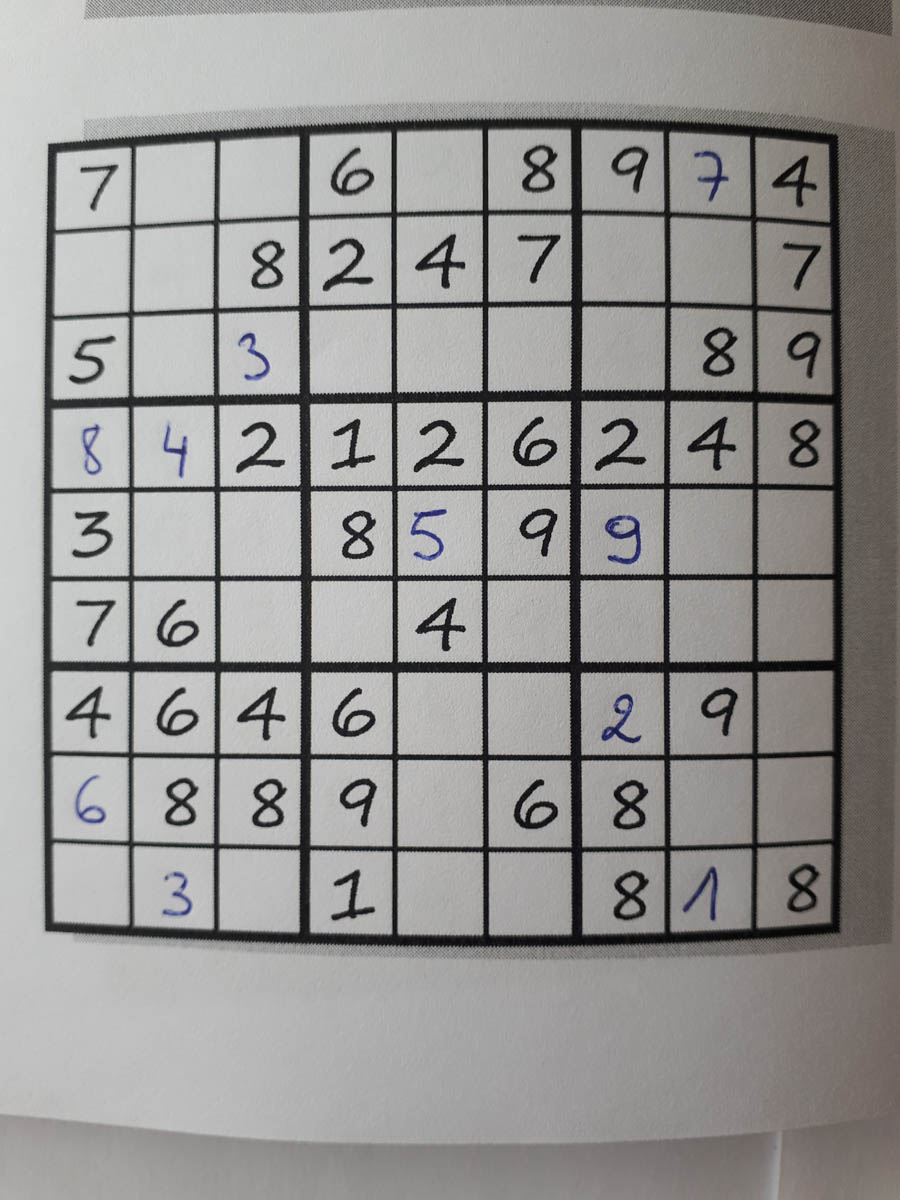 7 6 8 9 7 4
8 2 4 7 7
5 3 8 9
8 4 2 1 2 6 2 4 8
3 8 5 9 9
7 6 4
4 6 4 6 2 9
6 8 8 9 6 8
3 1 8 1 8